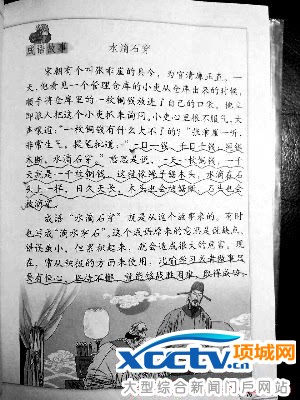 成语故事
水滴石穿
宋朝有个叫张乖崖的县令，为官清廉正直。一
天，他看见一个管理仓库的小吏从仓库出来的时候，
顺手将仓库里的一枚铜钱放进了自己的口袋。他立
即派人把这个小吏抓来询问。小吏心里很不服气，大
声嚷道：“一枚铜钱有什么大不了的？”张乖崖一听，
非常生气，提笔写道：“一日一钱，千日千钱；绳锯
木断，水滴石穿。”意思是说，一天一枚铜钱，一千
天就是一千枚铜钱。
石头上一样，日久天长，木头也会被锯断，石头也会
被滴穿。
成语“水滴石穿”就是从这个故事来的，有时
也写成“滴水穿石”。这个成语原来的意思是说缺点、
错误虽小，但累积起来，就会造成很大的危害。现
在，常从积极的方面来使用，比喻学习或者做事只
要有恒心，坚持不懈，就能够战胜困难，取得成功。
75
xcctv.cn项城网
大型综合新闻门户网站